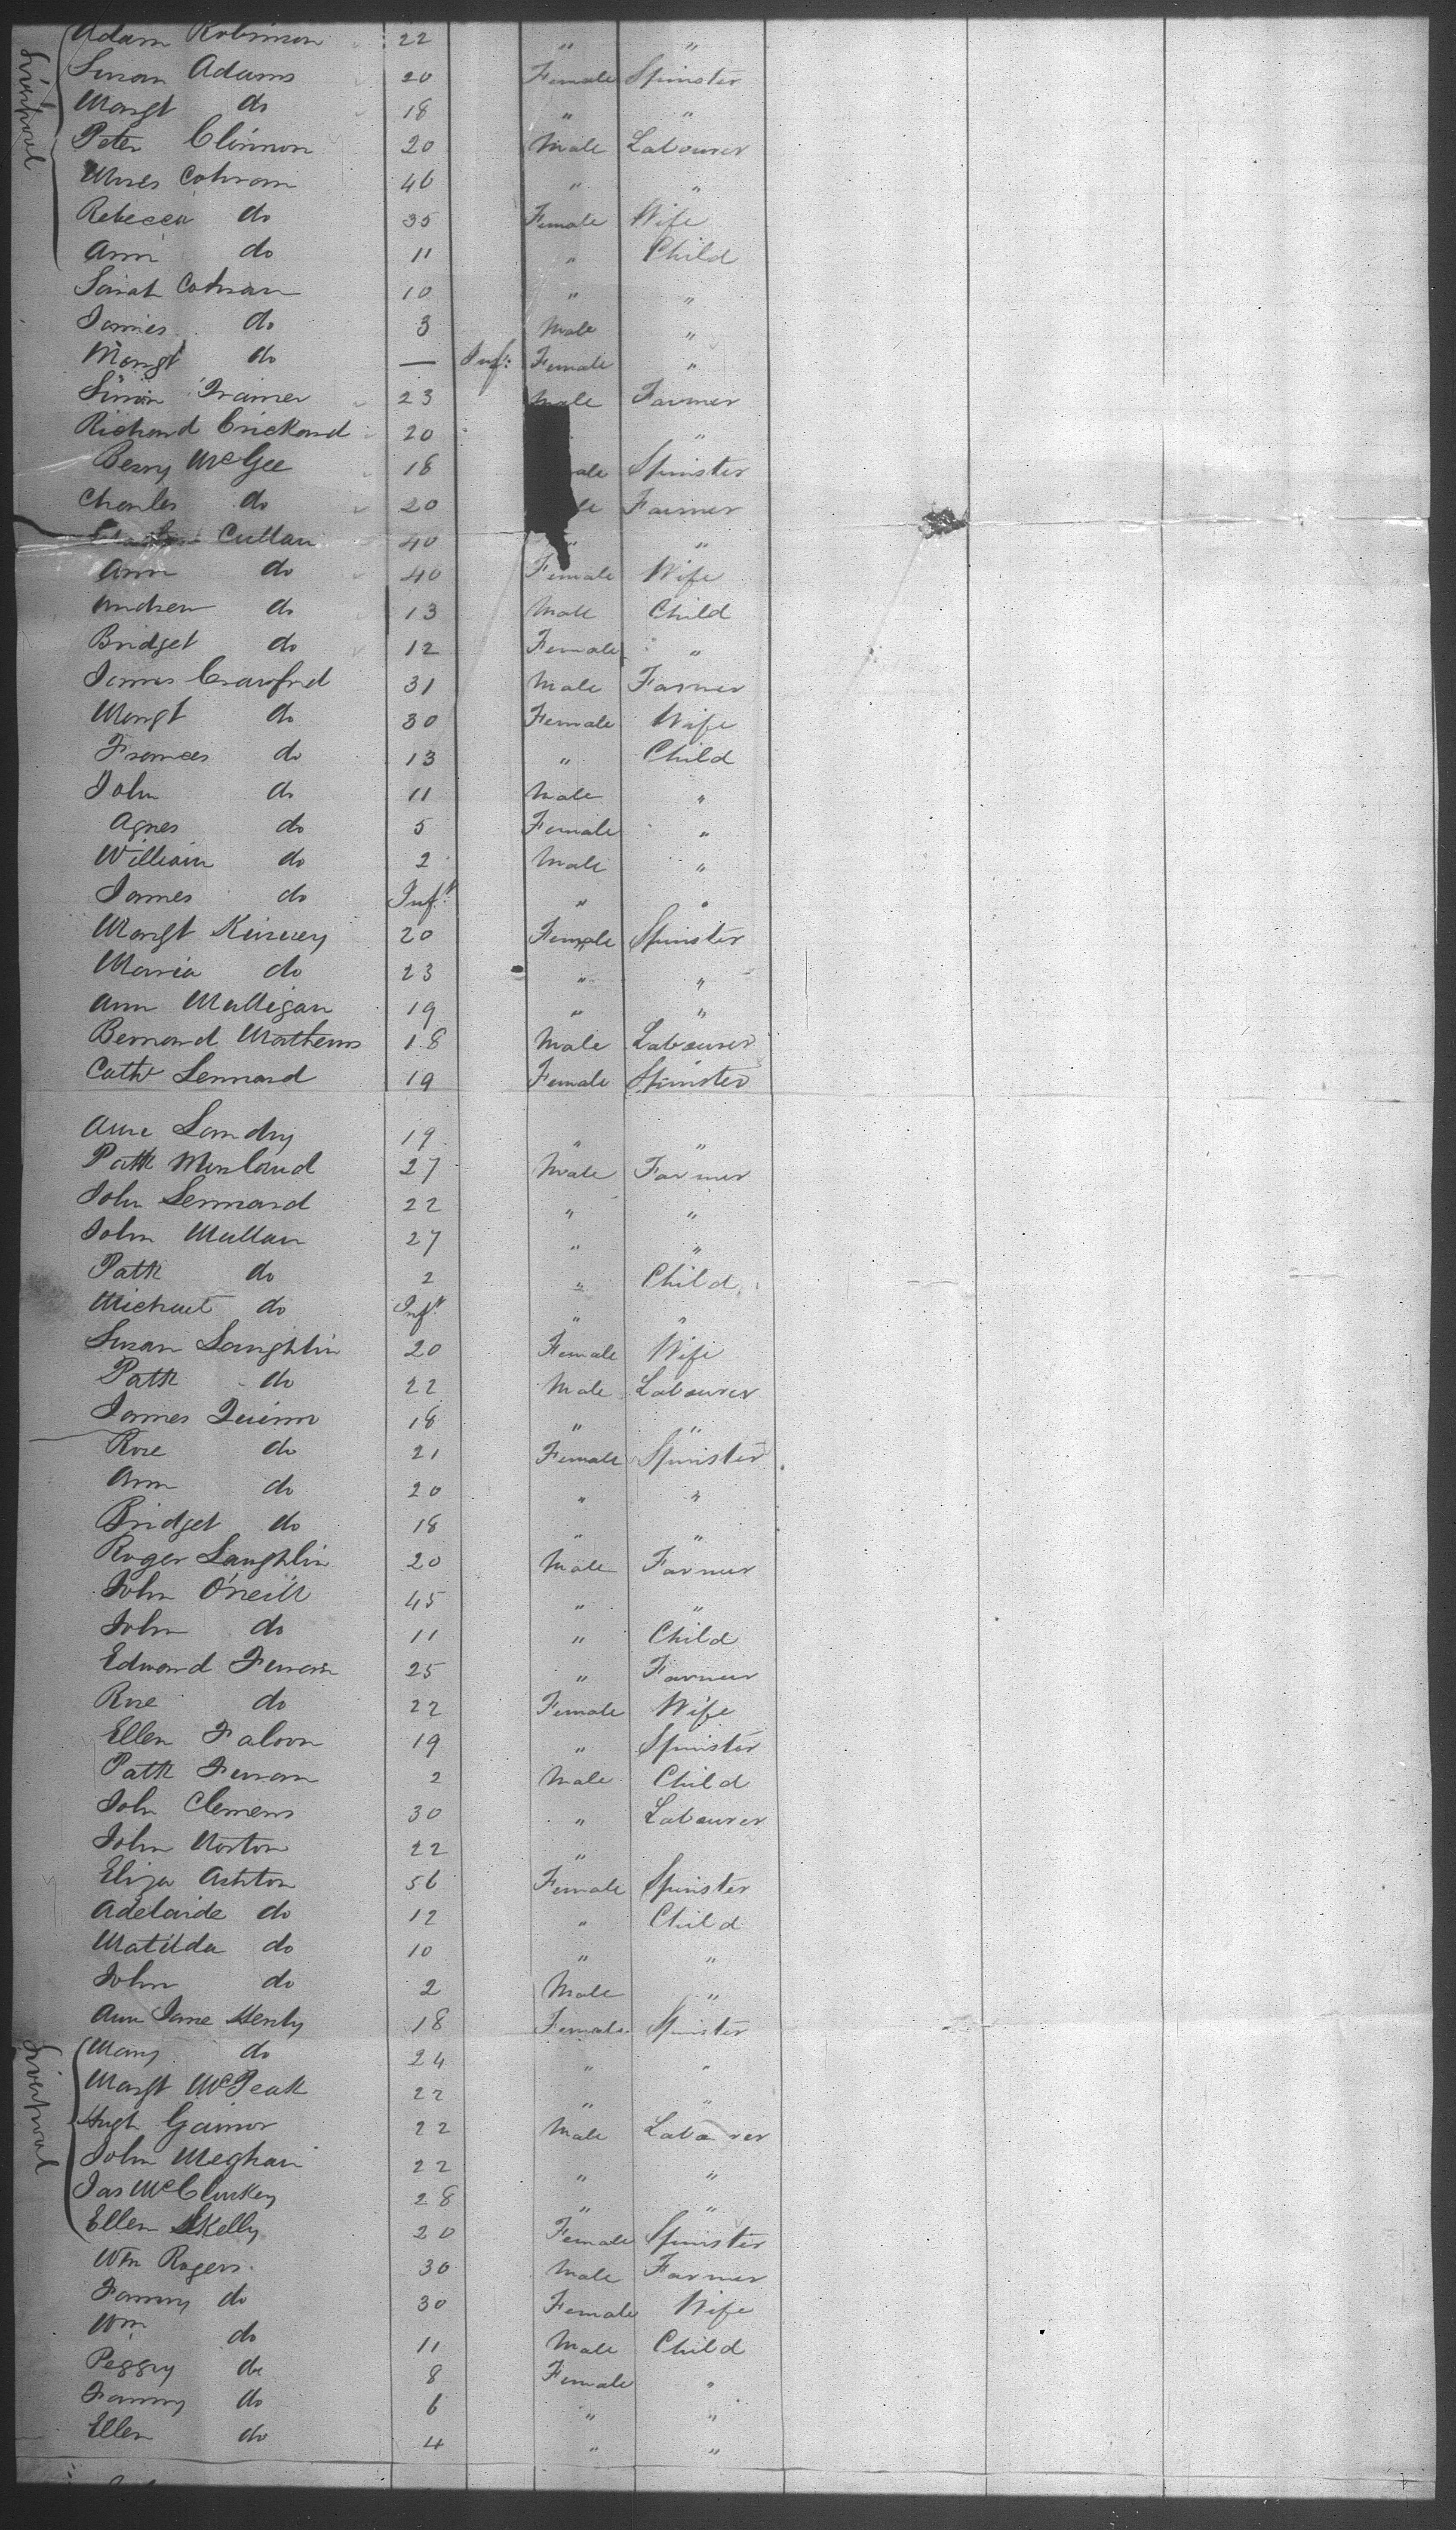 Liverpool
Adam Robinson 22 " "
Susan Adams 20 Female Spinster
Margt do 18 " "
Peter Clinnon 20 Male Labourer
Moses Cohran 46 " "
Rebecca do 35 Female Wife
Ann do 11 " Child
Sarah Cohran 10 " "
James do 3 Male "
Margt do — Inft: Female "
Simon Trainer 23 Male Farmer
Richard Crickard 20 "
McGee 18 ale Spinster
Charles do 20 le Farmer
Cullan 40 " "
Ann do 40 Female Wife
Andrew do 13 Male Child
Bridget do 12 Female "
James Crawford 31 Male Farmer
Margt do 30 Female Wife
Frances do 13 " Child
John do 11 Male "
Agnes do 5 Female "
William do 2 Male "
James do Inft " "
Margt Kinney 20 Female Spinster
Maria do 23 " "
Ann Mulligan 19 " "
Bernard Mathews 18 Male Labourer
Cath Lennard 19 Female Spinster
Anne Landry 19 " "
Patk 27 Male Farmer
John Lennard 22 " "
John Mullan 27 " "
Patk do 2 " Child
Michael do Inft " "
Susan Laughlin 20 Female Wife
Patk do 22 Male Labourer
James Quinn 18 " "
Rose do 21 Female Spinster
Ann do 20 " "
Bridget do 18 " "
Roger Laughlin 20 Male Farmer
John O'neill 45 " "
John do 11 " Child
Edward 25 " Farmer
Rose do 22 Female Wife
Ellen Faloon 19 " Spinster
Patk 2 Male Child
John Clemens 30 " Labourer
John Norton 22 "
Eliza Ashton 56 Female Spinster
Adelaide do 12 " Child
Matilda do 10 " "
John do 2 Male "
Ann Jane Henly 18 Female Spinster
Liverpool
Mary do 24 " "
Margt McPeak 22 " "
Hugh Gainor 22 Male Labourer
John Meghan 22 " "
Jas McCluskey 28 " "
Ellen Skelly 20 Female Spinster
Wm Rogers 30 Male Farmer
Fanny do 30 Female Wife
Wm do 11 Male Child
Peggy do 8 Female "
Fanny do 6 " "
Ellen do 4 " "